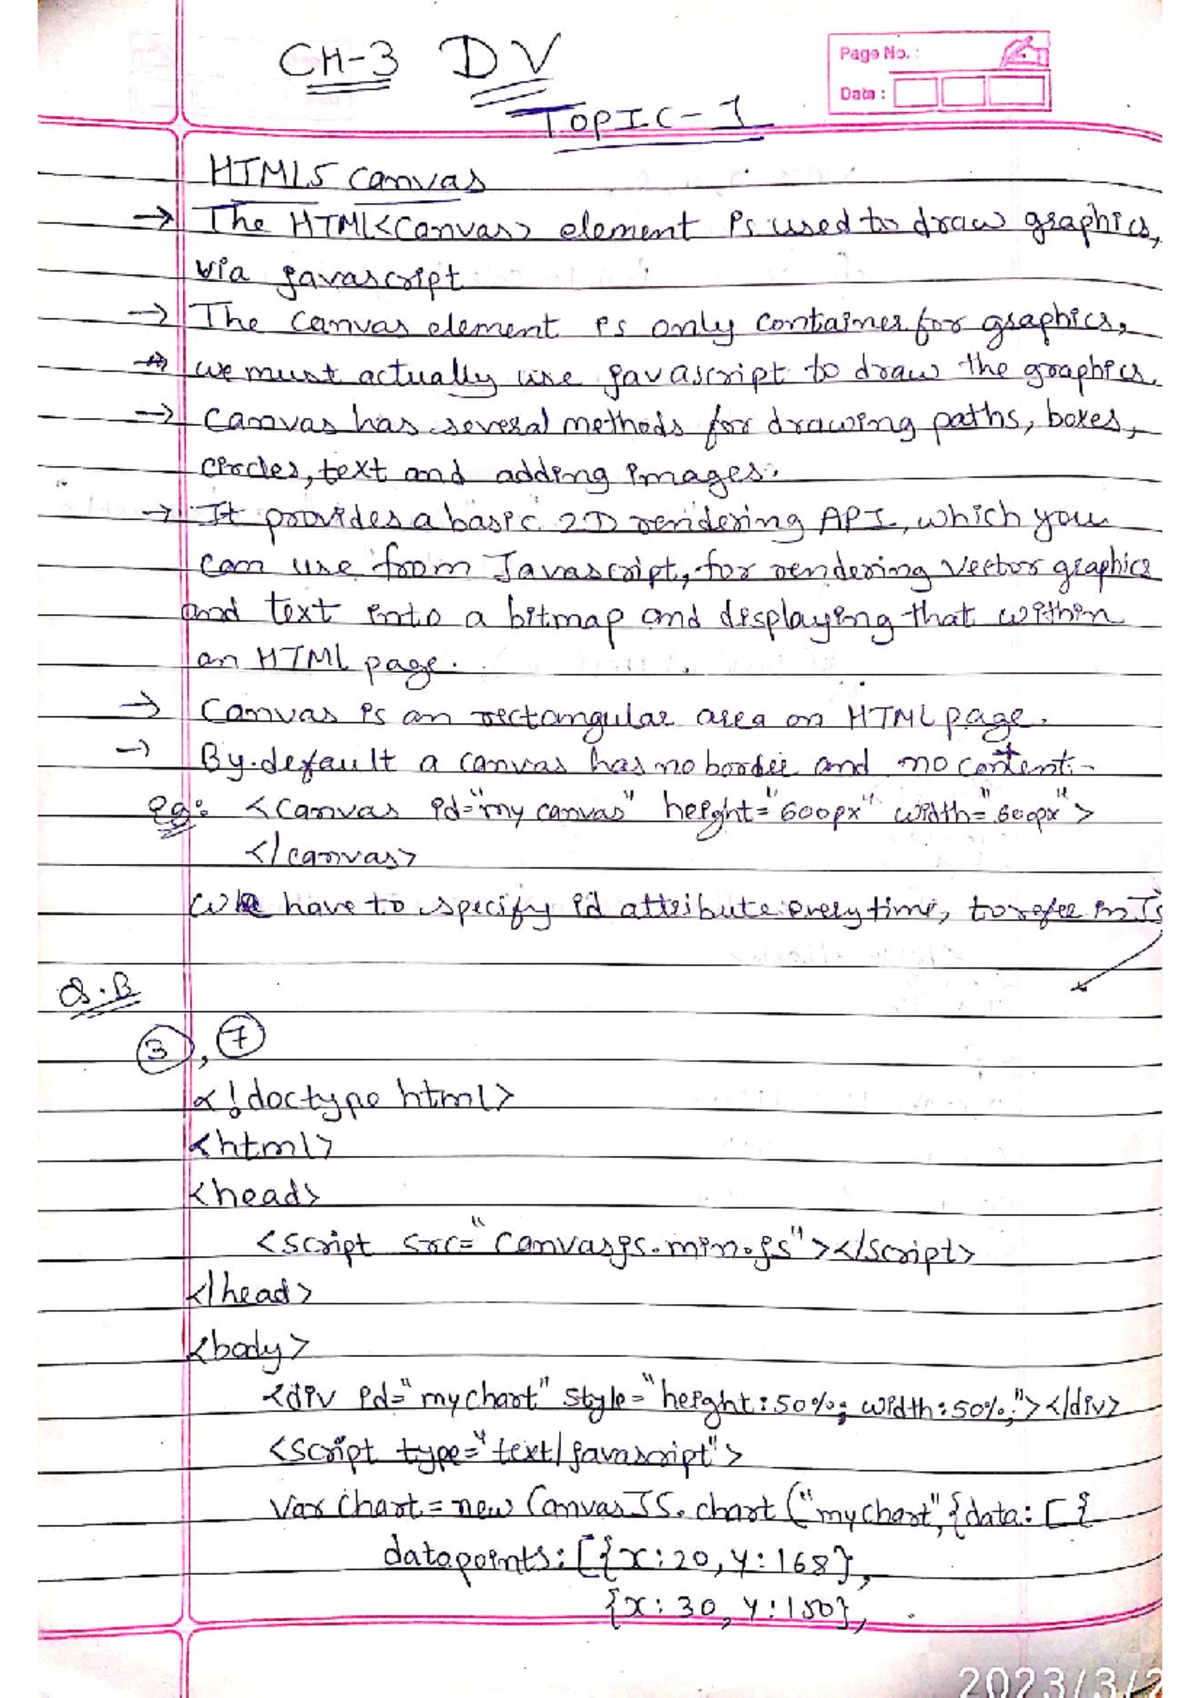 CH-3 DV
Page No. :
Date :
TOPIC-1
HTML5 canvas
→ The HTML<Canvas> element is used to draw graphics,
via javascript
→ The canvas element is only container for graphics,
→ we must actually use javascript to draw the graphics.
→ Canvas has several methods for drawing paths, boxes,
circles, text and adding images.
→ It provides a basic 2D rendering API, which you
can use from Javascript, for rendering vector graphics
and text into a bitmap and displaying that within
an HTML page.
→ Canvas is an rectangular area on HTML page.
→ By default a canvas has no border and no content.
eg: <canvas id="my canvas" height="600px" width="600px">
</canvas>
We have to specify id attribute every time, to refer in Js
Q.B
3, 7
<!doctype html>
<html>
<head>
<script src="canvasjs.min.js"></script>
</head>
<body>
<div id="mychart" style="height:50%; width:50%;"></div>
<script type="text/javascript">
Var chart = new CanvasJS.chart ("mychart",{data: [{
datapoints: [{x:20, y:168},
{x:30, y:150},
2023/3/2